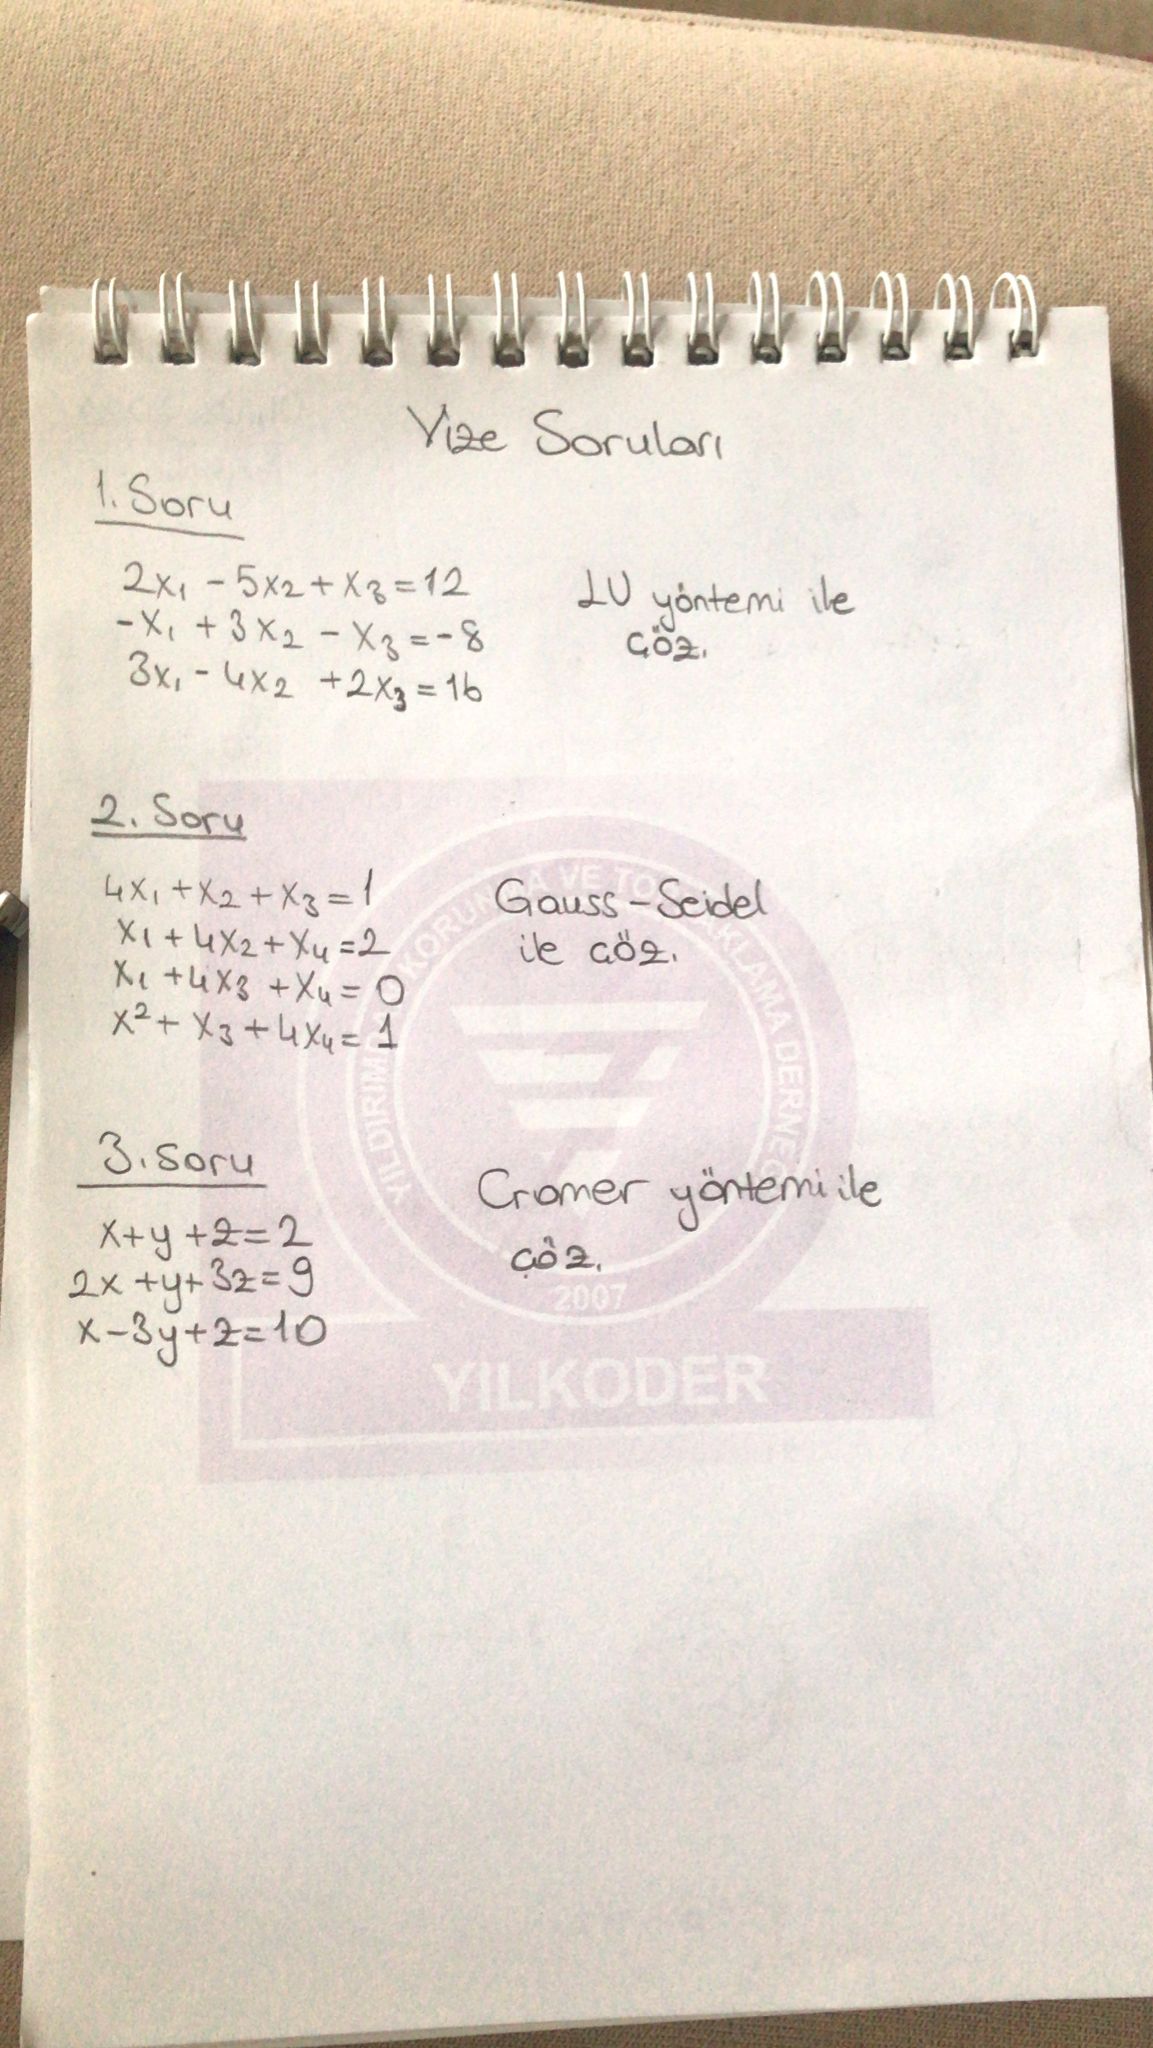 Vize Soruları
1. Soru
2x₁ - 5x₂ + x₃ = 12
-x₁ + 3x₂ - x₃ = -8
3x₁ - 4x₂ + 2x₃ = 16
LU yöntemi ile
çöz.
2. Soru
4x₁ + x₂ + x₃ = 1
x₁ + 4x₂ + x₄ = 2
x₁ + 4x₃ + x₄ = 0
x² + x₃ + 4x₄ = 1
Gauss-Seidel
ile çöz.
3. soru
x + y + z = 2
2x + y + 3z = 9
x - 3y + z = 10
Cramer yöntemi ile
çöz.
2007
YILKODER